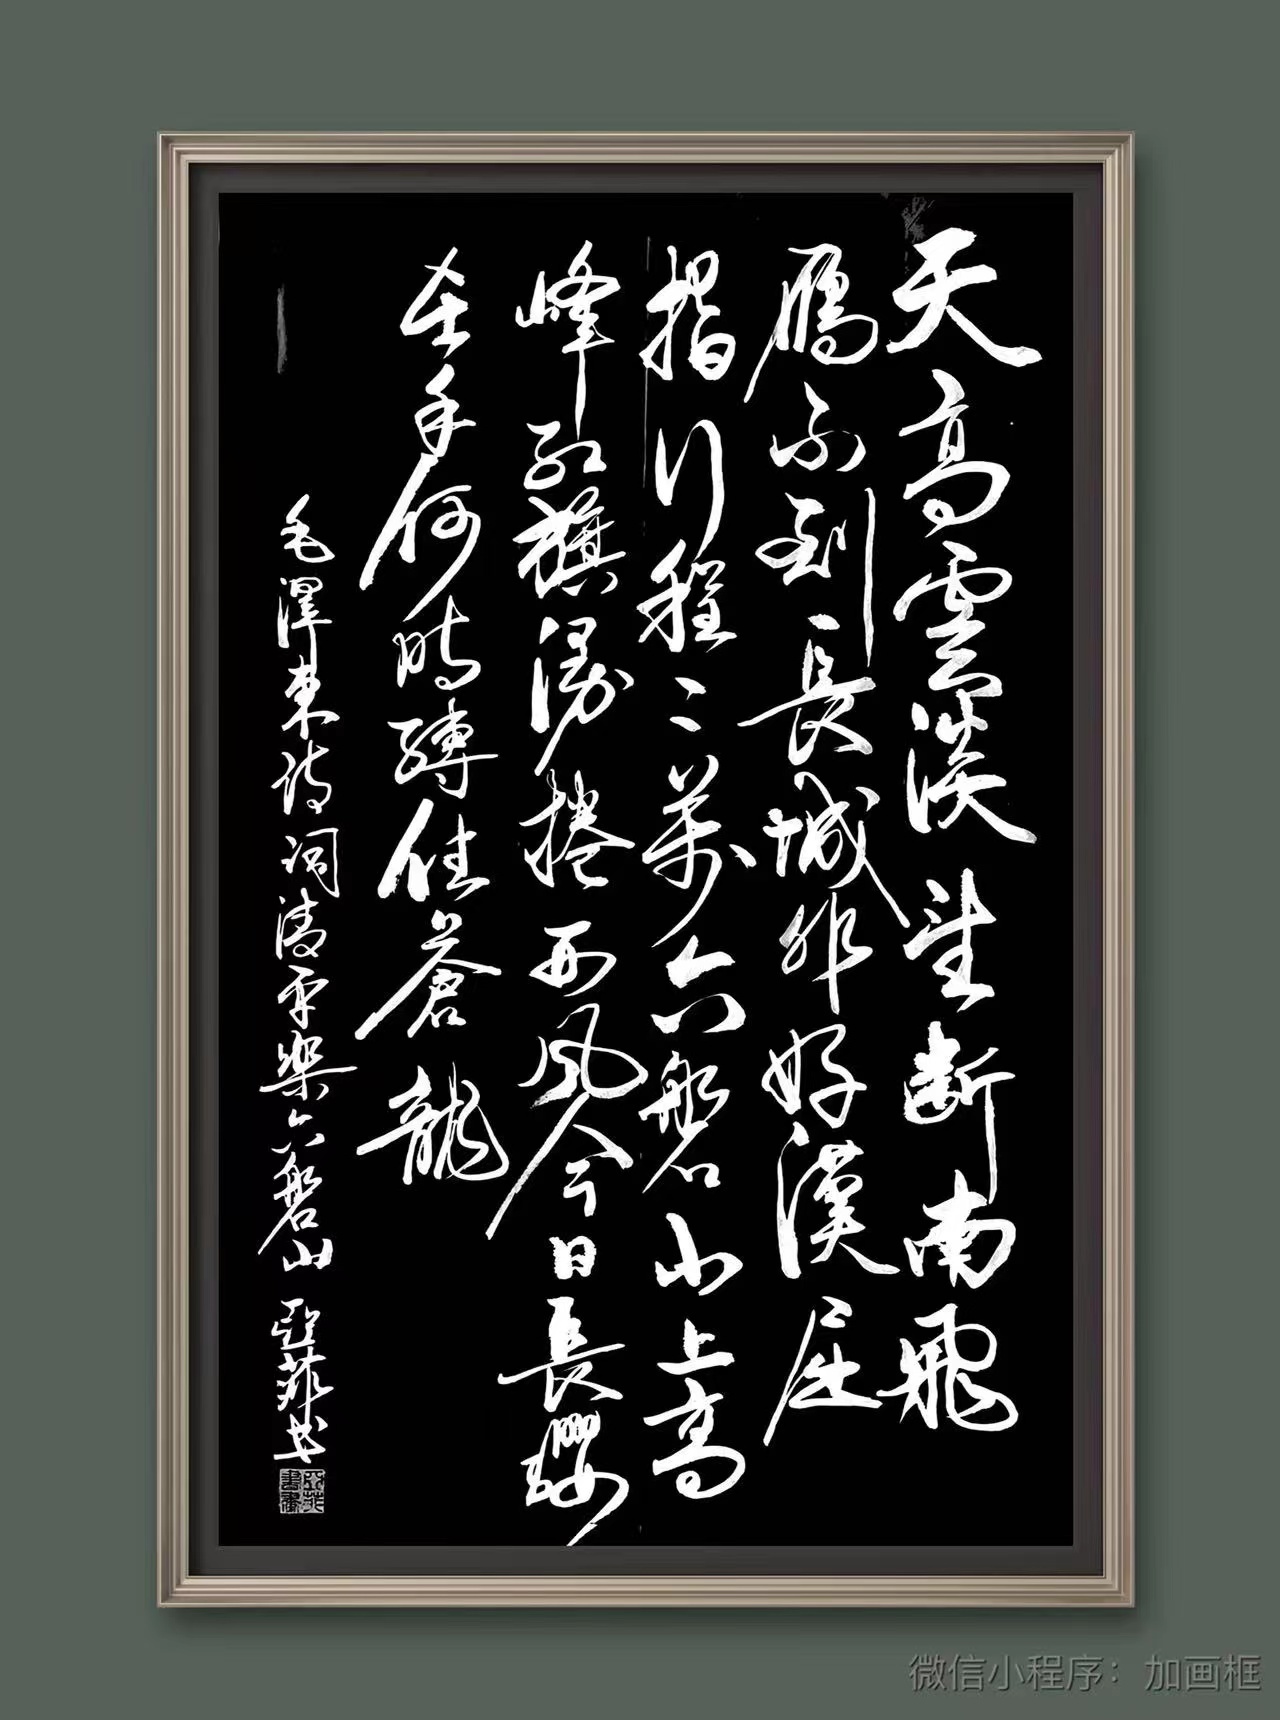 天高雲淡望斷南飛
鴈不到長城非好漢屈
指行程二萬六磐山上高
峰紅旗漫捲西風今日長纓
在手何時縛住蒼龍
毛澤東詩詞清平樂六磐山 亞菲书
微信小程序：加画框